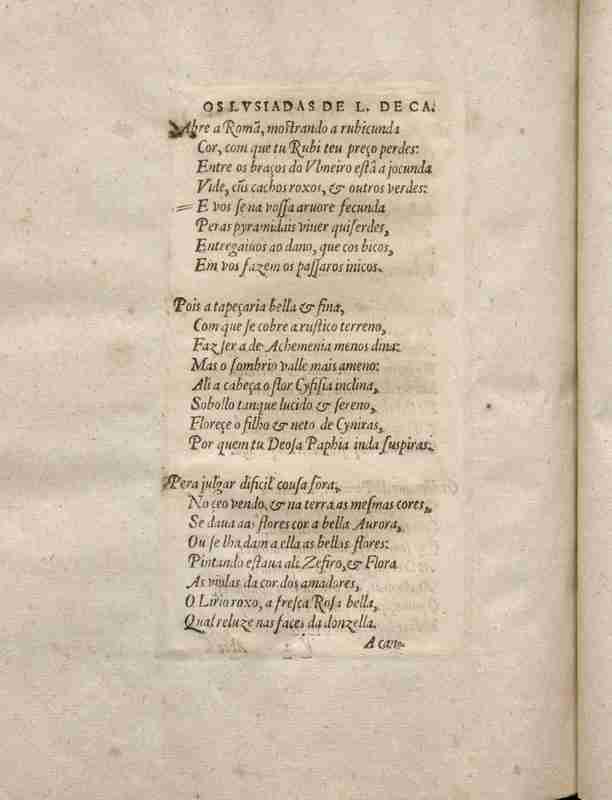 OS LVSIADAS DE L. DE CA.
Abre a Romã, mostrando a rubicunda
Cor, com que tu Rubi teu preço perdes:
Entre os braços do Vlmeiro està a jocunda
Vide, cũs cachos roxos, & outros verdes:
E vos se na vossa aruore fecunda
Peras pyramidais viuer quiserdes,
Entregaiuos ao dano, que cos bicos,
Em vos fazem os passaros inicos.
Pois a tapeçaria bella & fina,
Com que se cobre a rustico terreno,
Faz ser a de Achemenia menos dina:
Mas o sombrio valle mais ameno:
Ali a cabeça o flor Cyfisia inclina,
Sobollo tanque lucido & sereno,
Floreçe o filho & neto de Cyniras,
Por quem tu Deosa Paphia inda suspiras.
Pera julgar dificil cousa fora,
No çeo vendo, & na terra as mesmas cores,
Se daua aas flores cor a bella Aurora,
Ou se lha dam a ella as bellas flores:
Pintando estaua ali Zefiro, & Flora
As violas da cor dos amadores,
O Lirio roxo, a fresca Rosa bella,
Qual reluze nas faces da donzella.
A